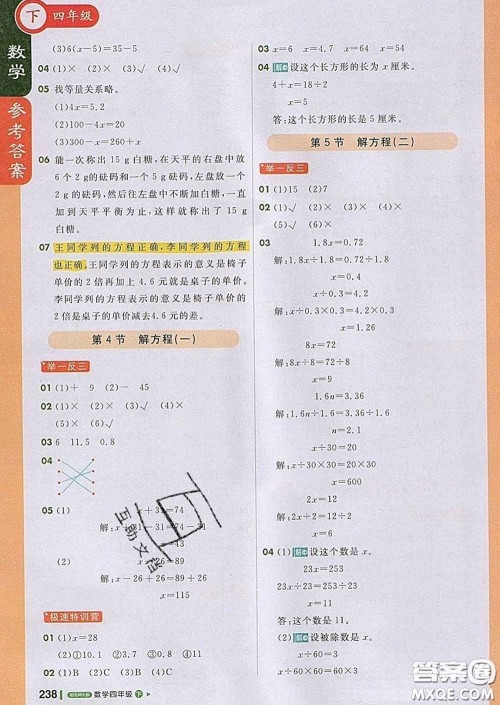 下 四年级
数学
参考答案
(3)6(x-5)=35-5
04 (1)× (2)× (3)√ (4)×
05 找等量关系略。
(1)4x=5.2
(2)100-4x=20
(3)300-x=260+x
06 能一次称出 15 g 白糖,在天平的右盘中放
6个2 g的砝码和一个5 g的砝码,左盘放一个
2 g的砝码,然后往左盘中不断加白糖,一直
加到天平平衡为止,这时就称出了 15 g
白糖。
07 王同学列的方程正确,李同学列的方程
也正确,王同学列的方程表示的意义是椅子
单价的2倍再加上4.6元就是桌子的单价。
李同学列的方程表示的意义是椅子的单价的
2倍是桌子的单价减去4.6元的差。
第4节 解方程(一)
举一反三
01 (1)+ 9 (2)- 45
02 (1)× (2)× (3)√ (4)×
(5)× (6)√
03 6 11.5 0.8
04
05 (1) x+31=74
解:x+31-31=74-31
x=43
(2) x-26=89
解:x-26+26=89+26
x=115
极速特训营
01 (1)x=28
(2)①10.1 ②3.7 ③0.8 ④11
02 (1)B (2)C (3)B (4)C
238 数学四年级 下
03 x=6 x=4.7 x=54 x=64
04 解:设这个长方形的长为 x 厘米。
4+x=18÷2
x=5
答:这个长方形的长是 5 厘米。
第5节 解方程(二)
举一反三
01 (1)15 (2)7
02 (1)√ (2)× (3)√ (4)×
(5)× (6)×
03 1.8x=0.72
解:1.8x÷1.8=0.72÷1.8
x=0.4
8x=72
解:8x÷8=72÷8
x=9
1.6n=1.6
解:1.6n÷1.6=1.6÷1.6
n=1
x÷30=20
解:x÷30×30=20×30
x=600
x÷0.6=100
解:x÷0.6×0.6=100×0.6
x=60
04 (1)解:设这个数是 x。
23x=253
23x÷23=253÷23
x=11
答:这个数是 11。
(2)解:设被除数是 x。
互助文档
答案圈
MXQE.COM